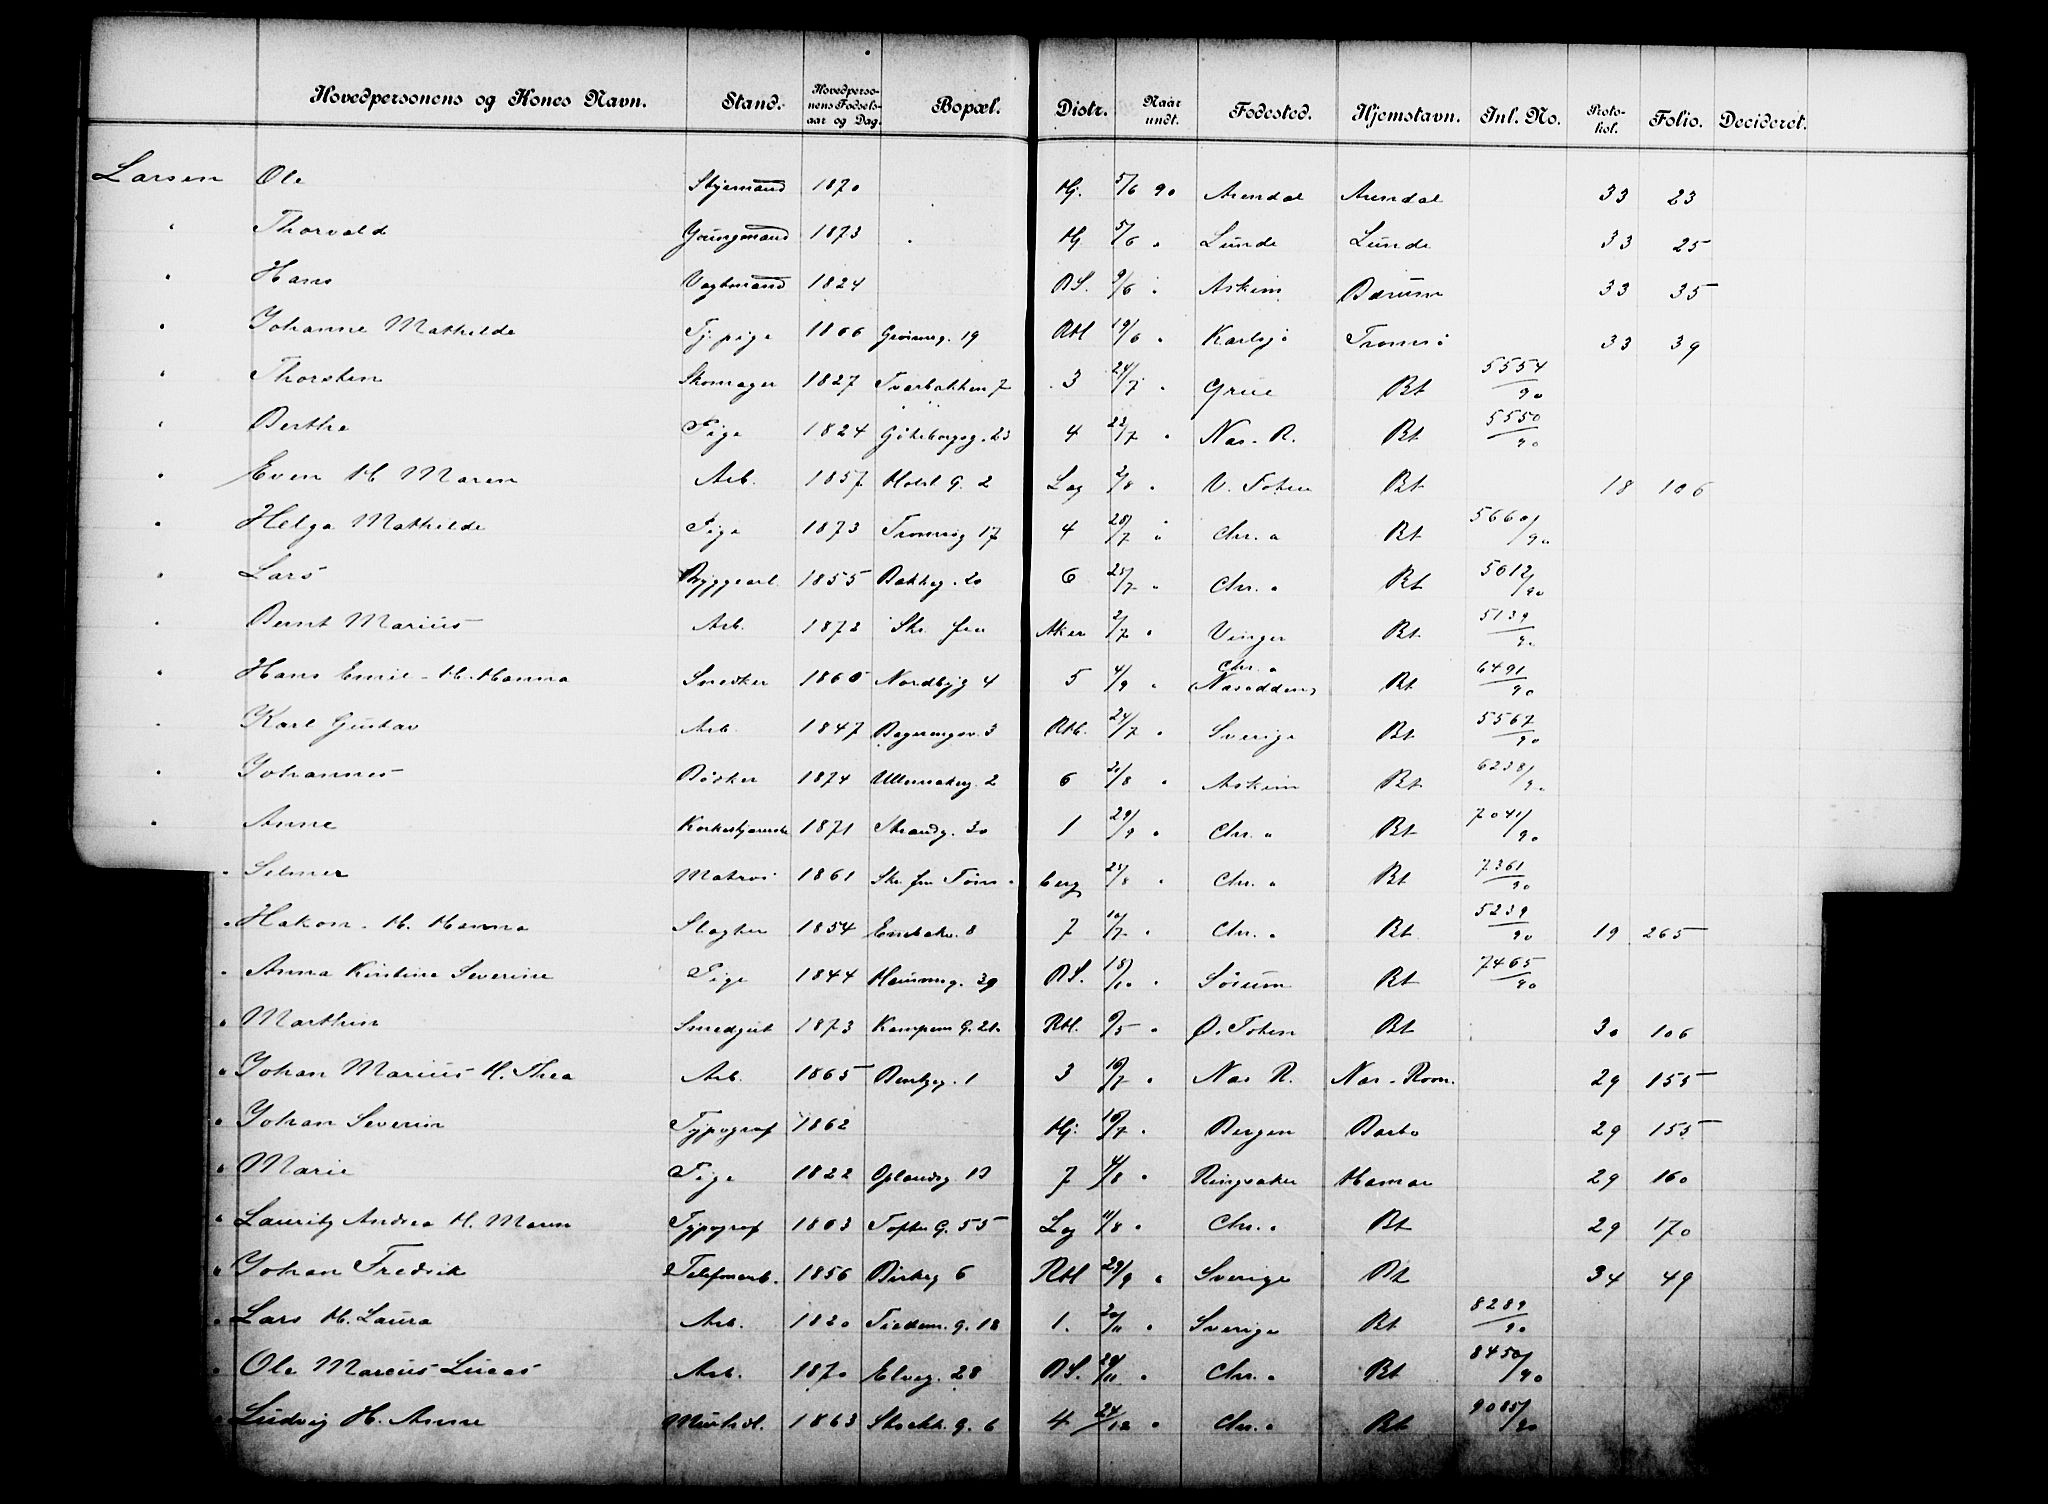 Hovedpersonens og Kones Navn. Stand. Hovedpersonens Fødselsaar og Dag. Bopæl. Distr. Naar undt. Fødested. Hjemstavn. Inl. No. Protokol. Folio. Decideret.
Larsen Ole 1870 Hj. 5/6 90 Arendal Arendal 33 23
" Thorvald Youngmand 1873 " Hj 5/6 " Lunde Lunde 33 25
" Hans Vagtmand 1824 9/6 " Askim Bærum 33 35
" Johanne Mathilde Tj. pige 1866 19 Rbl 19/6 " Karlsø Tromsø 33 39
" Thorsten Skomager 1827 Tvärbakken 7 3 24/7 " Grue Bt 5554/90
" Berthe Pige 1824 Göteborgsg. 23 4 22/7 " Næs. R. Bt 5550/90
" Even H Maren Arb. 1857 Holst G. 2 Lag 2/8 " V. Toten Bt 18 106
" Helga Mathilde Pige 1873 Tromsøg 17 4 28/7 " Chr. a Bt 5660/90
" Lars Byggearb. 1855 Bakkeg. 20 6 25/7 " Chr. a Bt 5612/90
" Bernt Marius Arb. 1873 Skr. fra Aker 2/7 " Vinger Bt 5139/90
" Hans Emil - H. Hanna Snedker 1860 Nordbyg 4 5 4/9 " Chr. a (Næsodden) Bt 6491/90
" Karl Gustav Arb. 1847 3 Rbl. 24/7 " Sverige Bt 5567/90
" Johannes Bødker 1874 Ullensakerg. 2 6 21/8 " Askim Bt 6238/90
" Anne 1871 Strandg. 30 1 29/9 " Chr. a Bt 7041/90
" Selmer Matros 1861 Skr. fra Tøns- berg 25/8 " Chr. a Bt 7361/90
" Hakon. H. Hanna Slagter 1854 8 7 10/7 " Chr. a Bt 5239/90 19 265
" Anna Kirstine Severine Pige 1844 39 18/10 " Sørum Bt 7465/90
" Marthin Smedgut 1873 Kampens G. 26 Rbl. 9/5 " Ø. Toten Bt 30 106
" Johan Marius H. Thea Arb. 1865 1 3 10/7 " Næs R. Næs - Rom. 29 155
" Johan Severin Typograf 1862 Hj. 10/7 " Bergen Barbo 29 155
" Marie Pige 1822 Oplandsg 13 7 4/8 " Ringsaker Hamar 29 160
" Lauritz Andrea H. Maren Typograf 1863 Tofte G. 55 Lag 11/8 " Chr. a Bt 29 170
" Johan Fredrik Telefonarb. 1856 Birkeg 6 Rbl 23/9 " Sverige Bt 34 49
" Lars H. Laura Arb. 1820 Tiedem. G. 18 1. 20/11 " Sverige Bt 8289/90
" Ole Marcus Lucas Arb. 1870 Elveg. 28 24/11 " Chr. a Bt 8450/90
" Ludvig H. Anne 1863 G. 6 4 24/12 " Chr. a Bt 9085/90